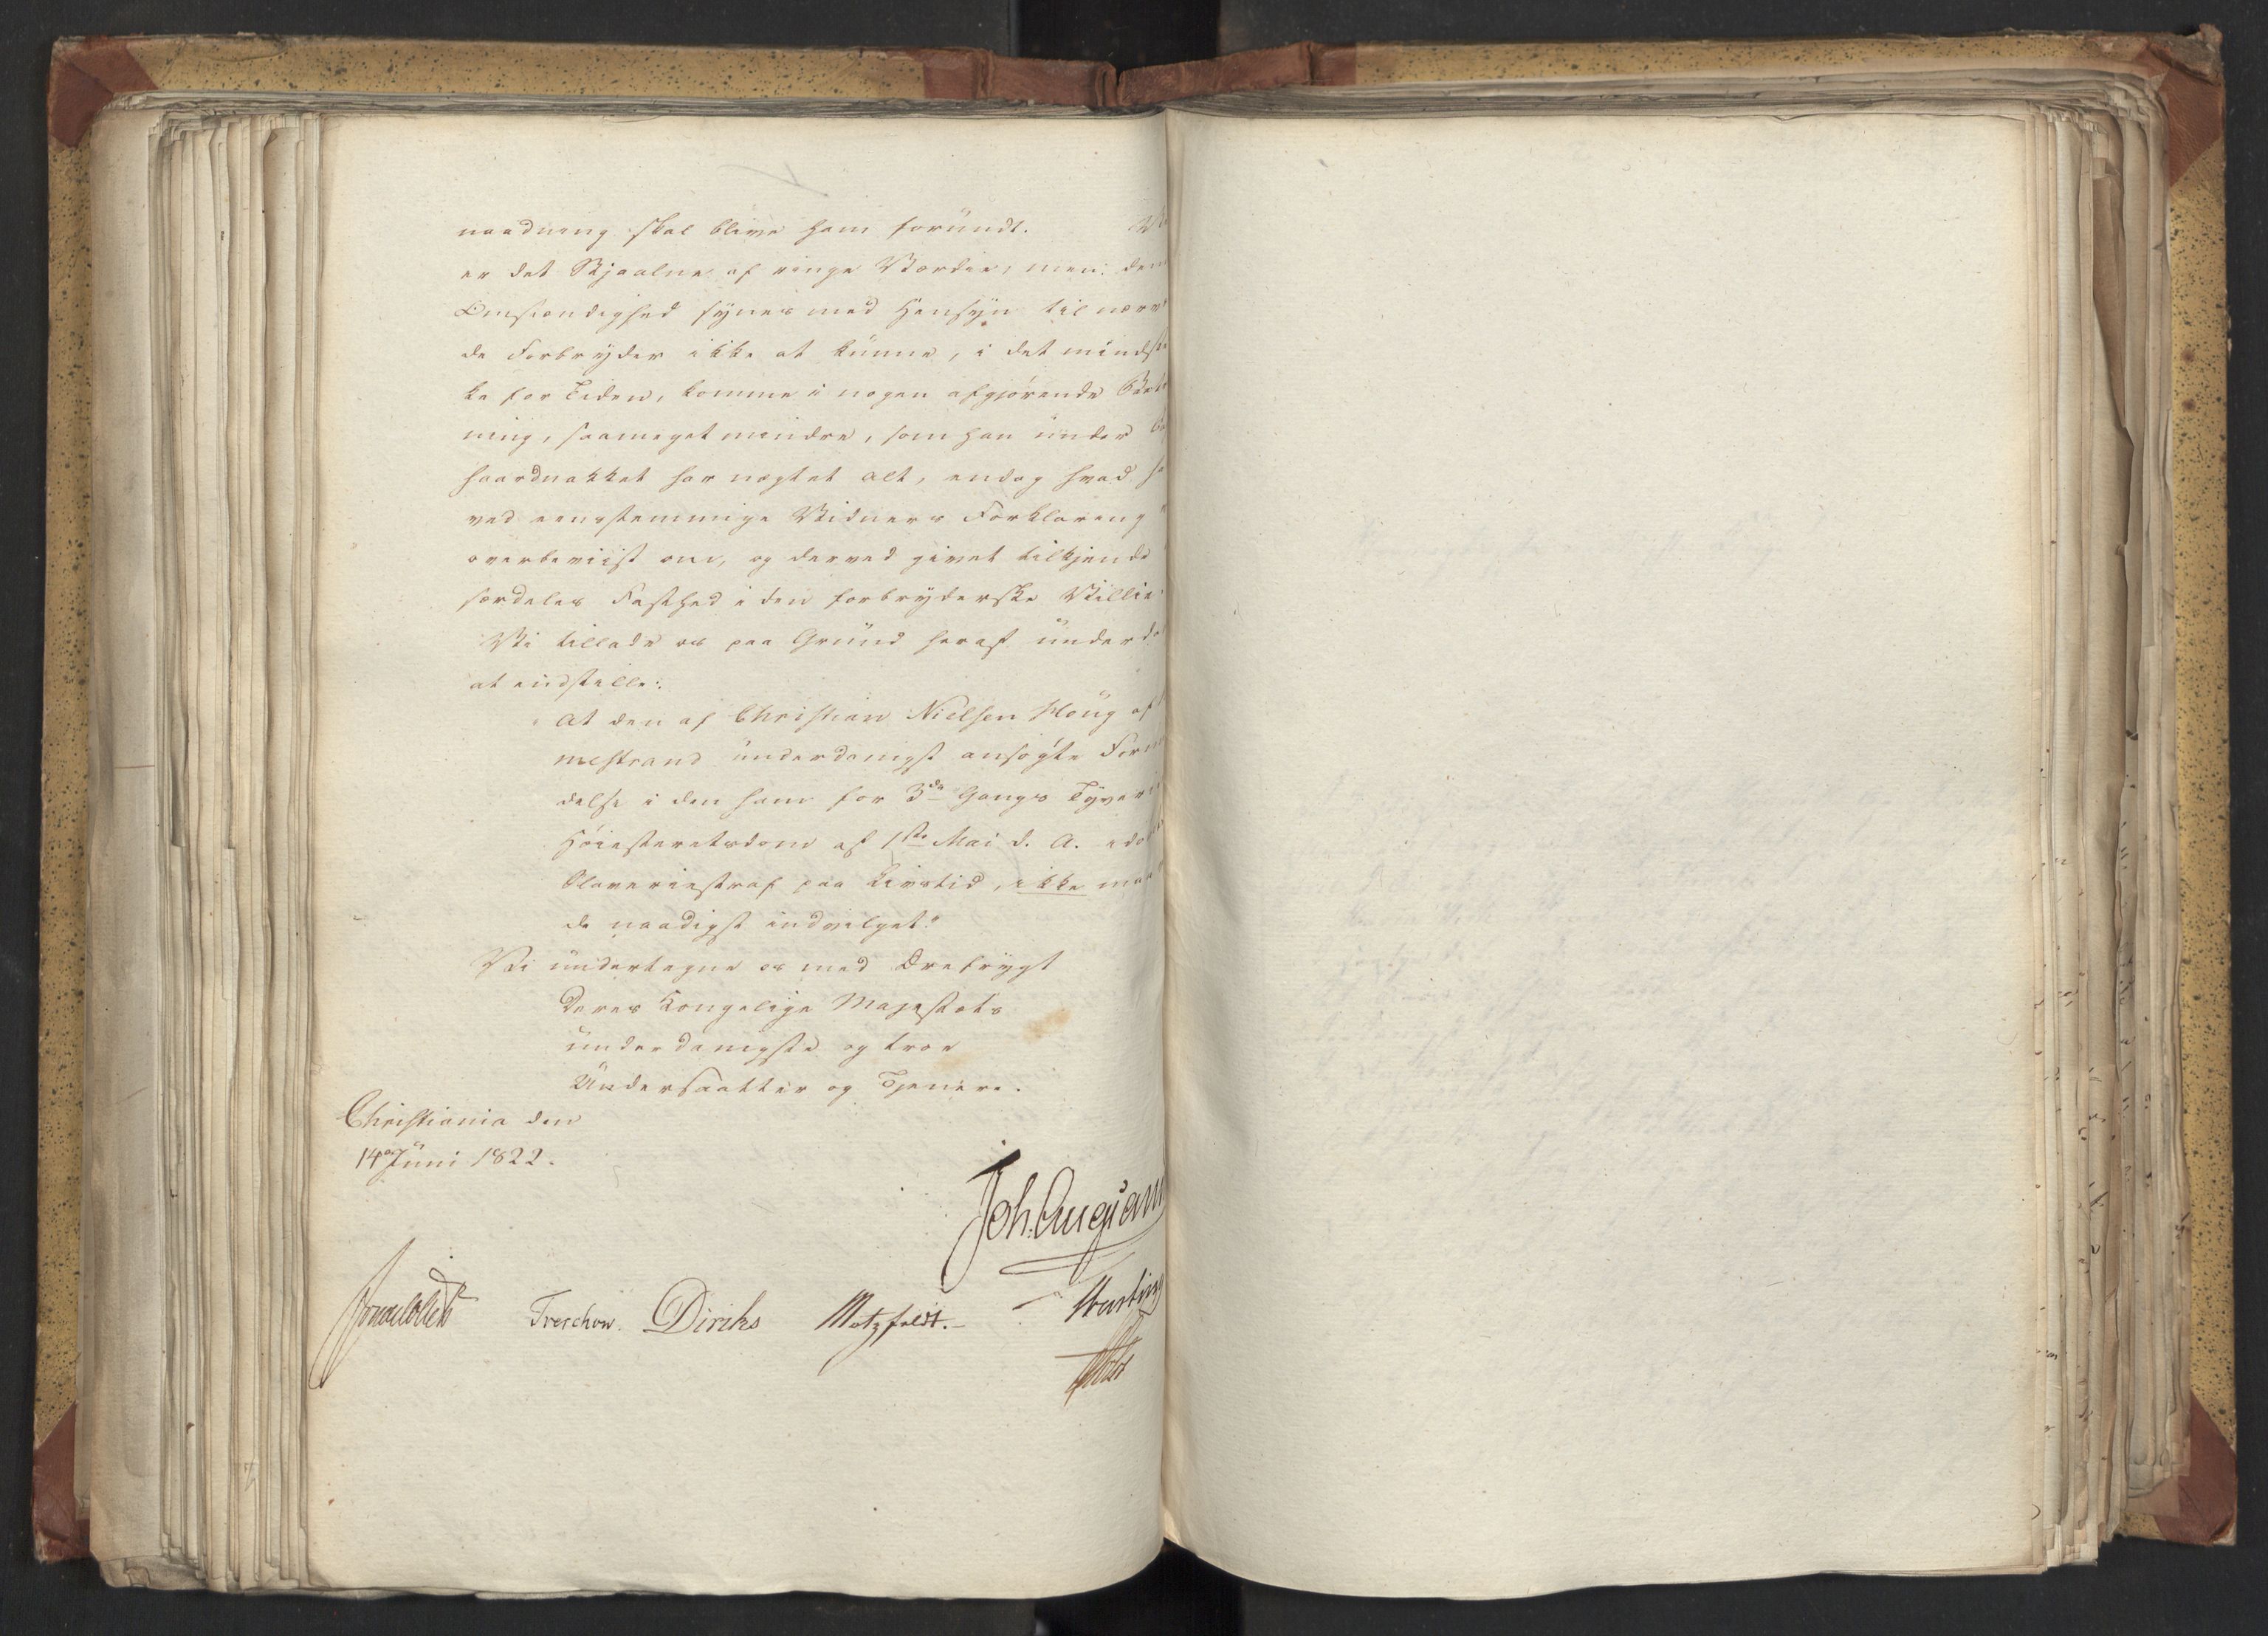 naadning skal blive ham forundt.
er det Stjaalne af ringe Værdie, men den
Omstændighed synes med Hensyn til nærv
de Forbryder ikke at kunne, i det mindste
ke for Tiden, komme i nogen afgjørende Bet
ning, saameget mindre, som han under
haardnakket har nægtet alt, endog hvad
ved eenstemmige Vidners Forklaring
overbeviist om, og derved givet tilkjende
særdeles Fasthed i den forbryderske Villie.
Vi tillade os paa Grund heraf underd
at indstille:
"At den af Christian Nielsen Houg af
mestrand underdanigst ansøgte For
delse i den ham for 3de Gangs Tyverie
Høiesteretsdom af 1ste Mai d. A. ido
Slaveriestraf paa Livstid, ikke maa
de naadigst indvilget."
Vi undertegne os med Ærefrygt
Deres Kongelige Majestæts
underdanigste og troe
Undersaatter og Tjenere.
Christiania den
14de Juni 1822.
Joh. Aug: Sam
Jonas Collett Treschow. Diriks Motzfeldt.
Holst